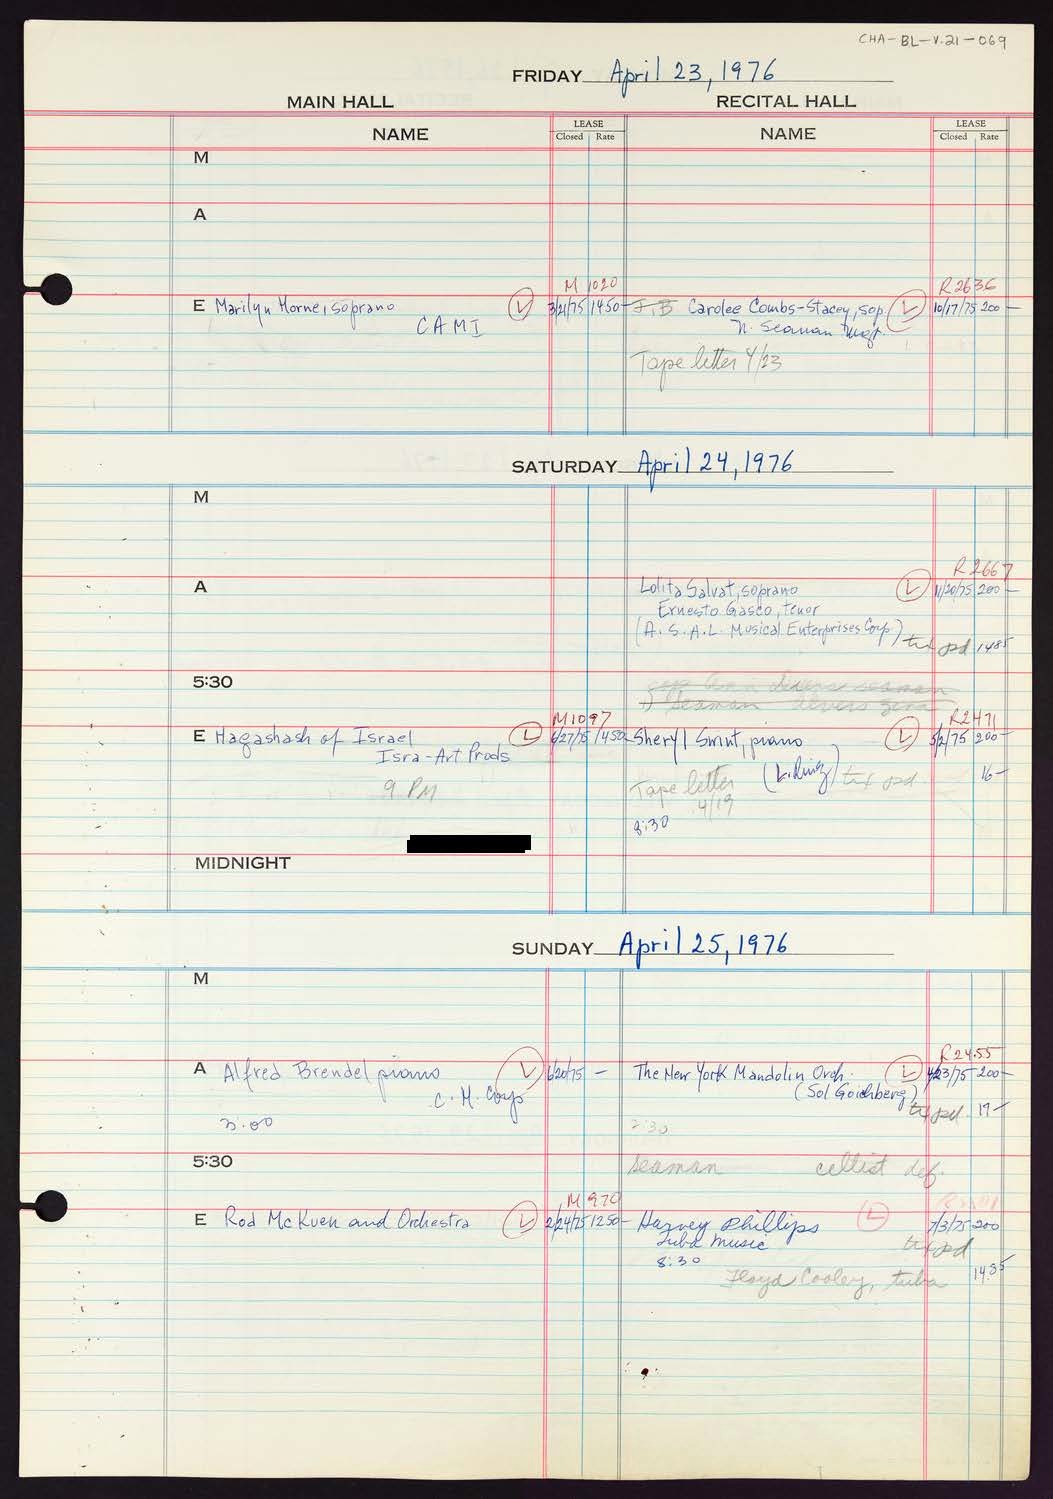 CHA-BL-V.21-069
FRIDAY April 23, 1976
MAIN HALL
RECITAL HALL
NAME
LEASE
Closed Rate
NAME
LEASE
Closed Rate
M
A
M 1020
R2636
E Marilyn Horne, soprano L 3/21/75 1450-
CAMI
J.B Carolee Combs-Stacey, sop. L 10/17/75 200-
N. Seaman Mgt.
Tape letter 4/23
SATURDAY April 24, 1976
M
A
R 2667
Lolita Salvat, soprano L 11/20/75 200-
Ernesto Gasco, tenor
(A.S.A.L. Musical Enterprises Corp.)
tix pd 1485
5:30
Seaman
M1097
R2471
E Hagashash of Israel L 6/27/75 1450-
Isra-Art Prods
9 PM
Sheryl Smut, piano L 5/2/75 200-
Tape letter
4/19
tix pd. 16-
8:30
MIDNIGHT
SUNDAY April 25, 1976
M
R 2455
A Alfred Brendel piano L 6/20/75 -
C.H. Corp
3:00
The New York Mandolin Orch. L 4/23/75 200-
(Sol Goichberg)
tix pd. 17-
2:30
5:30
Seaman cellist def.
M 970
E Rod McKuen and Orchestra L 2/24/75 1250-
Harvey Phillips L 7/3/75 200
Tuba Music
tix pd
8:30
Floyd Cooley, tuba 14.85